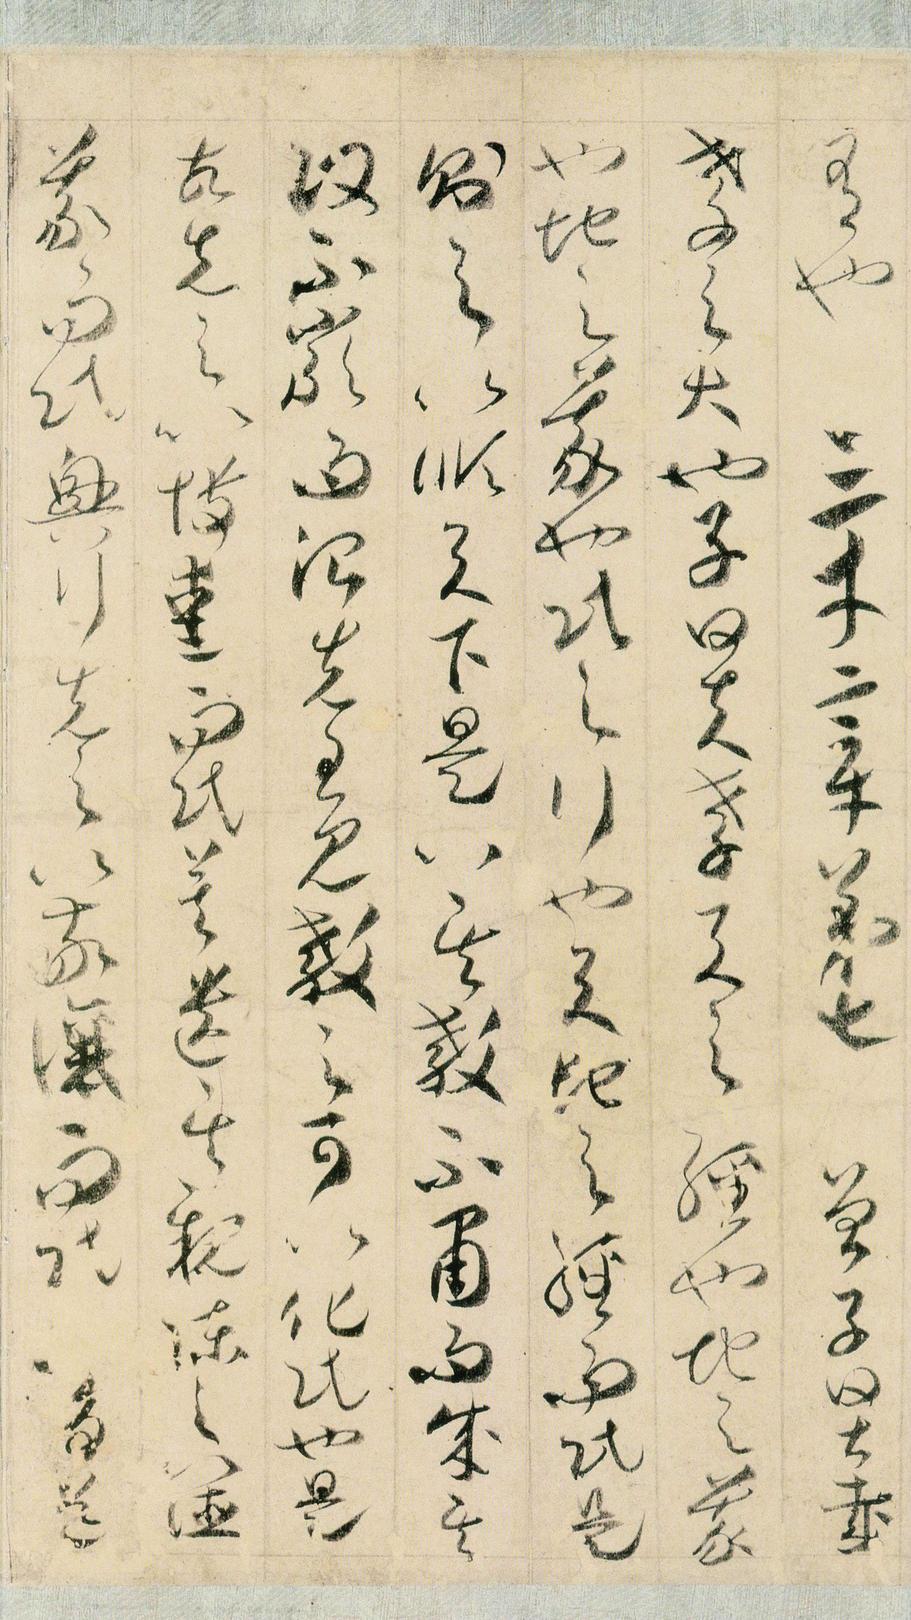 有也　三才章第七　曾子曰甚哉
孝之大也子曰夫孝天之經也地之義
也地之義也民之行也天地之經而民是
則之以順天下是以其教不肅而成其
政不嚴而治先王見教之可以化民也是
故先之以博愛而民莫遺其親陳之以德
義而民興行先之以敬讓而民